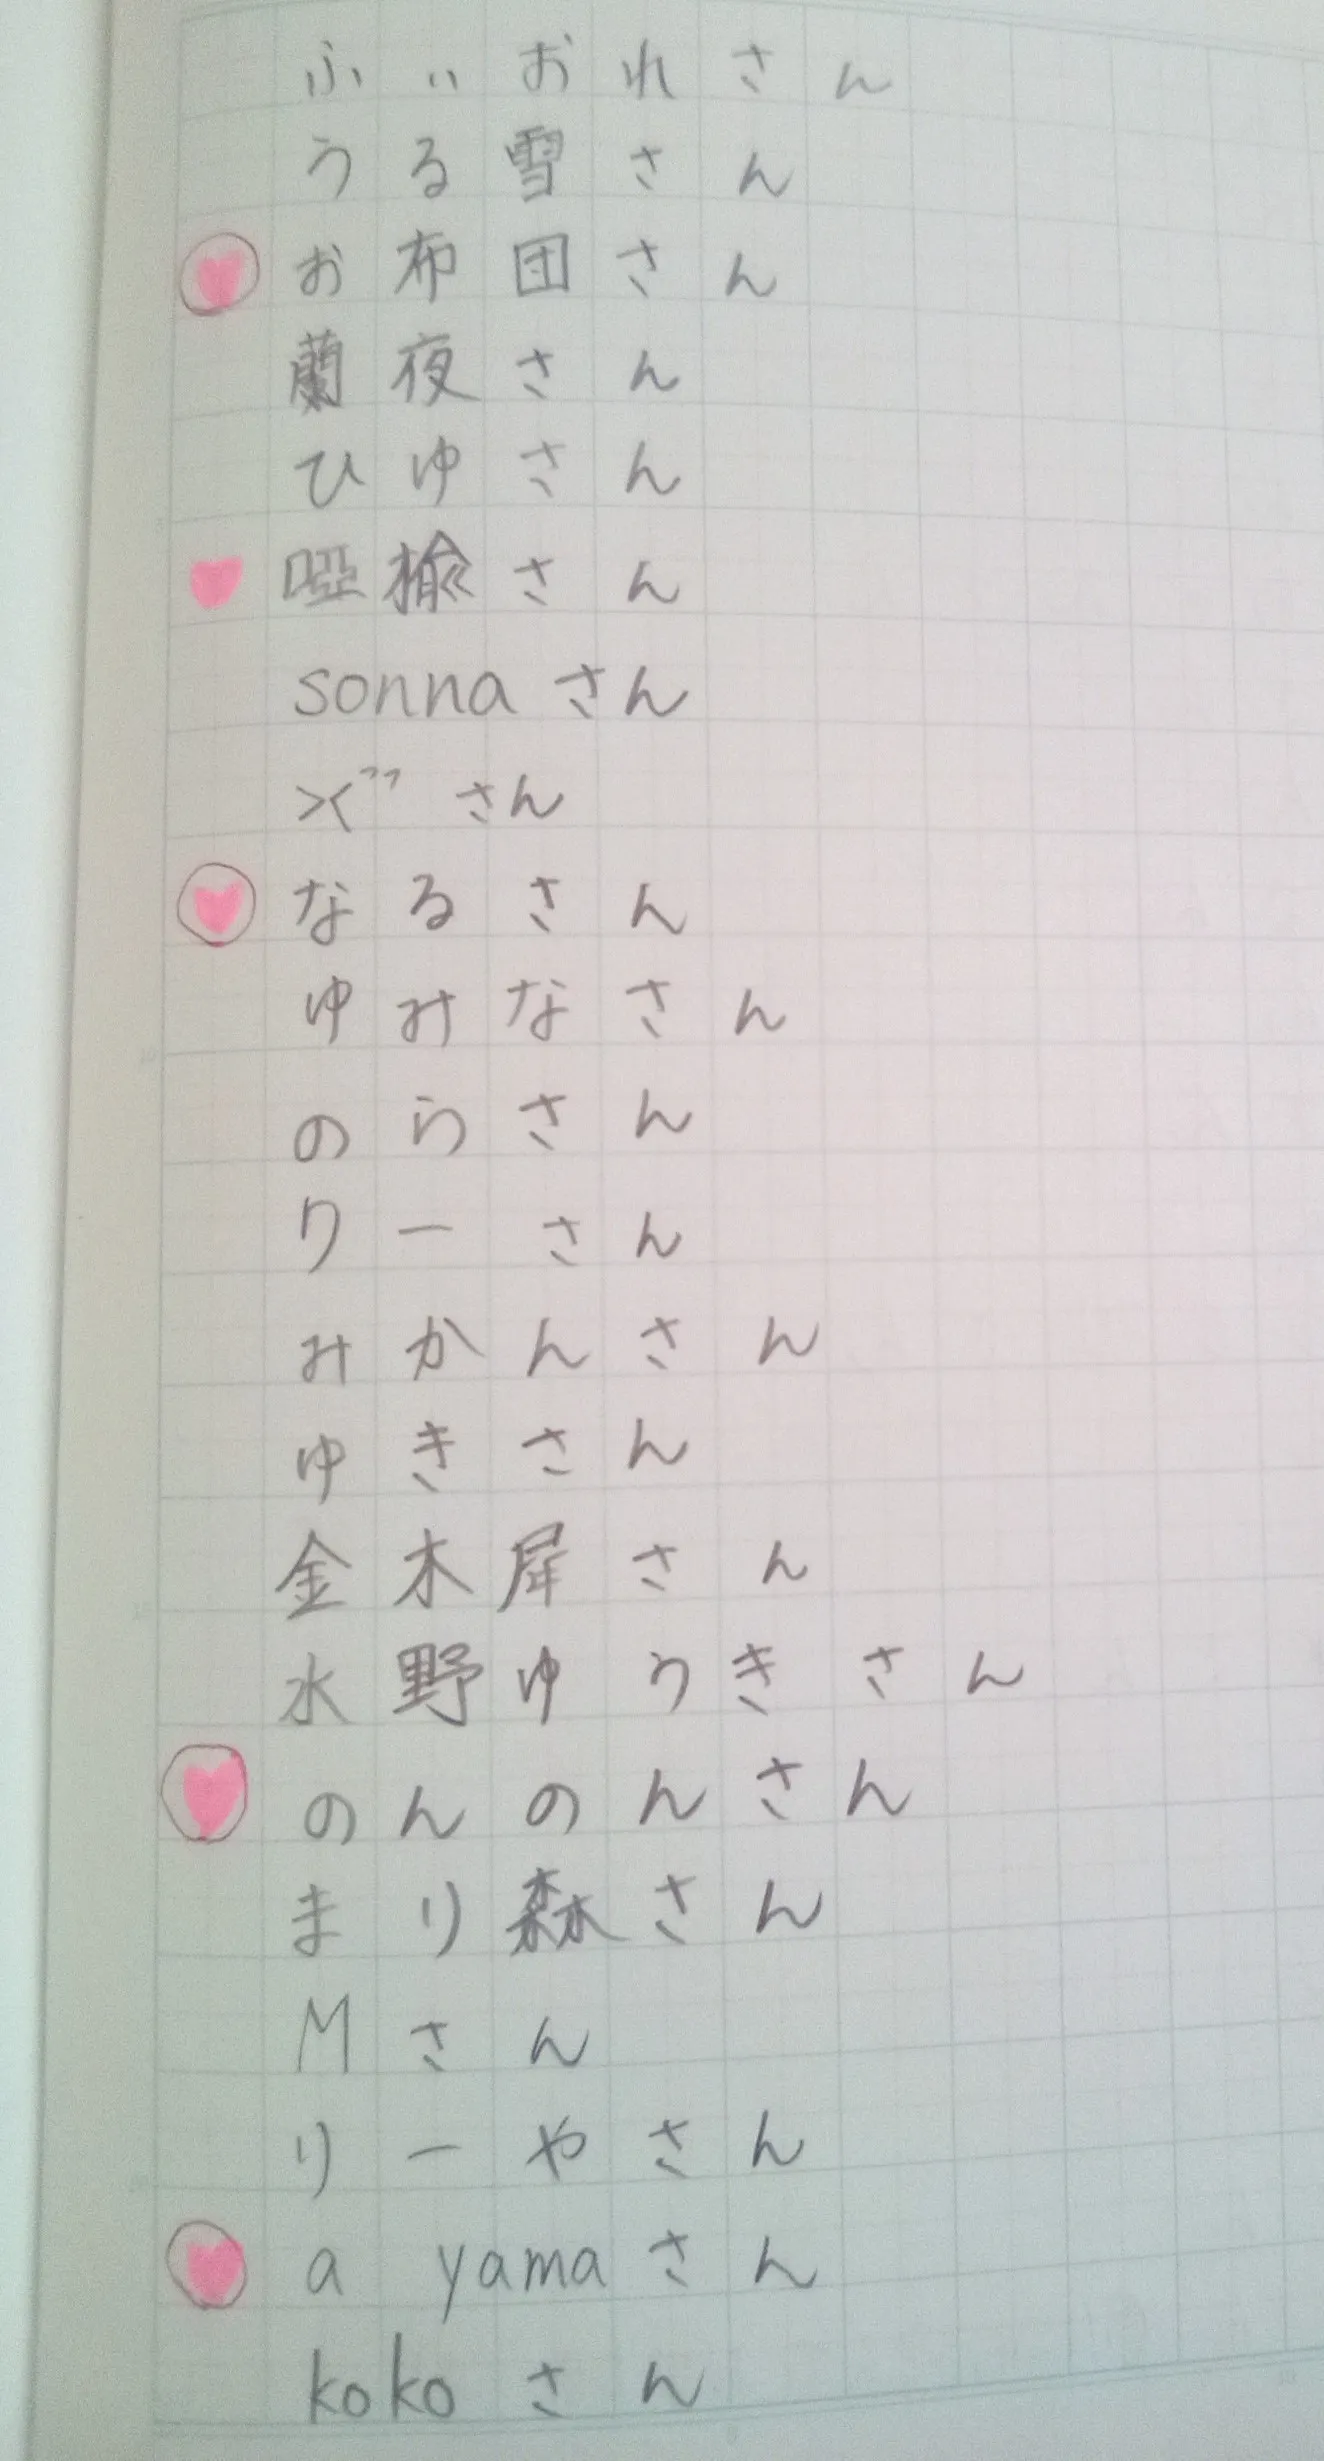 ふぃおれさん
うる雪さん
お布団さん
蘭夜さん
ひゆさん
啞揄さん
sonnaさん
さん
なるさん
ゆみなさん
のらさん
りーさん
みかんさん
ゆきさん
金木犀さん
水野ゆうきさん
のんのんさん
まり森さん
Mさん
りーやさん
a yamaさん
kokoさん